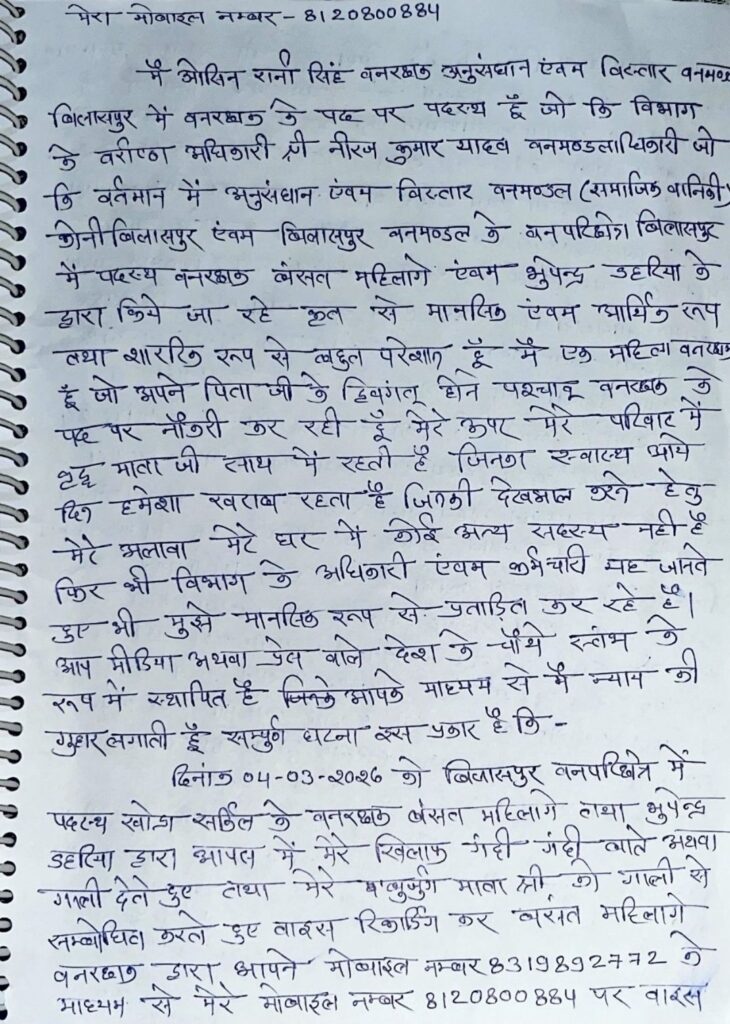 मेरा मोबाइल नम्बर - 8120800884
मैं ओसिन रानी सिंह वनरक्षक अनुसंधान एंवम विस्तार वनमण्डल
बिलासपुर में वनरक्षक के पद पर पदस्थ हूँ जो कि विभाग
के वरीष्ठ अधिकारी श्री नीरज कुमार यादव वनमण्डलाधिकारी जो
कि वर्तमान में अनुसंधान एंवम विस्तार वनमण्डल (समाजिक वानिकी)
कोनी बिलासपुर एंवम बिलासपुर वनमण्डल के वनपरिक्षेत्र बिलासपुर
में पदस्थ वनरक्षक बंसत महिलागे एंवम भुपेन्द्र डहरिया के
द्वारा किये जा रहे कृत से मानसिक एंवम आर्थिक रूप
तथा शाररिक रूप से बहुत परेशान हूँ मैं एक महिला वनरक्षक
हूँ जो अपने पिता जी के दिवगंत होने पश्चात् वनरक्षक के
पद पर नौकरी कर रही हूँ मेरे ऊपर मेरे परिवार में
वृद्ध माता जी साथ में रहती है जिनका स्वास्थ्य आये
दिन हमेशा खराब रहता है जिनकी देखभाल करने हेतु
मेरे अलावा मेरे घर में कोई अन्य सदस्य नही है
फिर भी विभाग के अधिकारी एंवम कर्मचारी यह जानते
हुए भी मुझे मानसिक रूप से प्रताड़ित कर रहे है।
आप मीडिया अथवा प्रेस वाले देश के चौथे स्तंभ के
रूप में स्थापित है जिनके आपके माध्यम से मैं न्याय की
गुहार लगाती हूँ सम्पुर्ण घटना इस प्रकार है कि -
दिनांक 04-03-2026 को बिलासपुर वनपरिक्षेत्र में
पदस्थ खोन्द्रा सर्किल के वनरक्षक बंसत महिलागे तथा भुपेन्द्र
डहरिया द्वारा आपस में मेरे खिलाफ गंदी गंदी बाते अथवा
गाली देते हुए तथा मेरे बुजुर्ग माता श्री को गाली से
सम्बोधित करते हुए वाइस रिकार्डिंग कर बसंत महिलागे
वनरक्षक द्वारा आपने मोबाइल नम्बर 8319892772 के
माध्यम से मेरे मोबाइल नम्बर 8120800884 पर वाइस